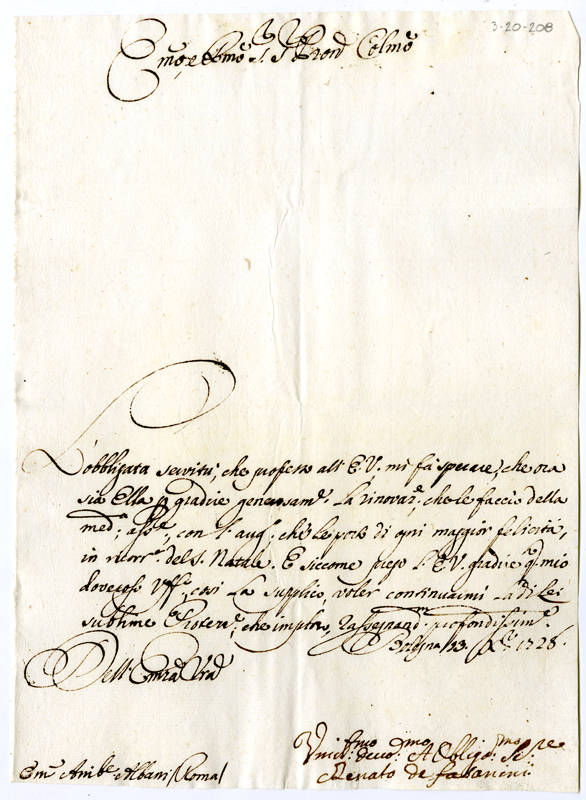 3-20-208
Em̃o, e Rmõ Sig. Sig. Pron Colmõ
L'obbligata servitù, che professo all'E.V. mi fà sperare, che ora
sia Ella p gradire generosam.te la rinovaz.e, che le faccio della
med.a, con l'aug.o, che le porto di ogni maggior felicità,
in ricorr.a del S. Natale. E siccome prego l'E.V. gradire q.o mio
doveroso Uff.o, così La supplico, voler continuarmi la di Lei
sublime che imploro, rassegnand. profondissim.e
Bologna 13. Xbre 1728.
Dell'Em̃za Vrã
Em.o Anibe Albani /Roma/
Umil.mo Devo.mo Obligo.mo Se.re
Renato de